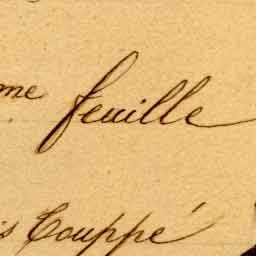 me feuille
is Couppé